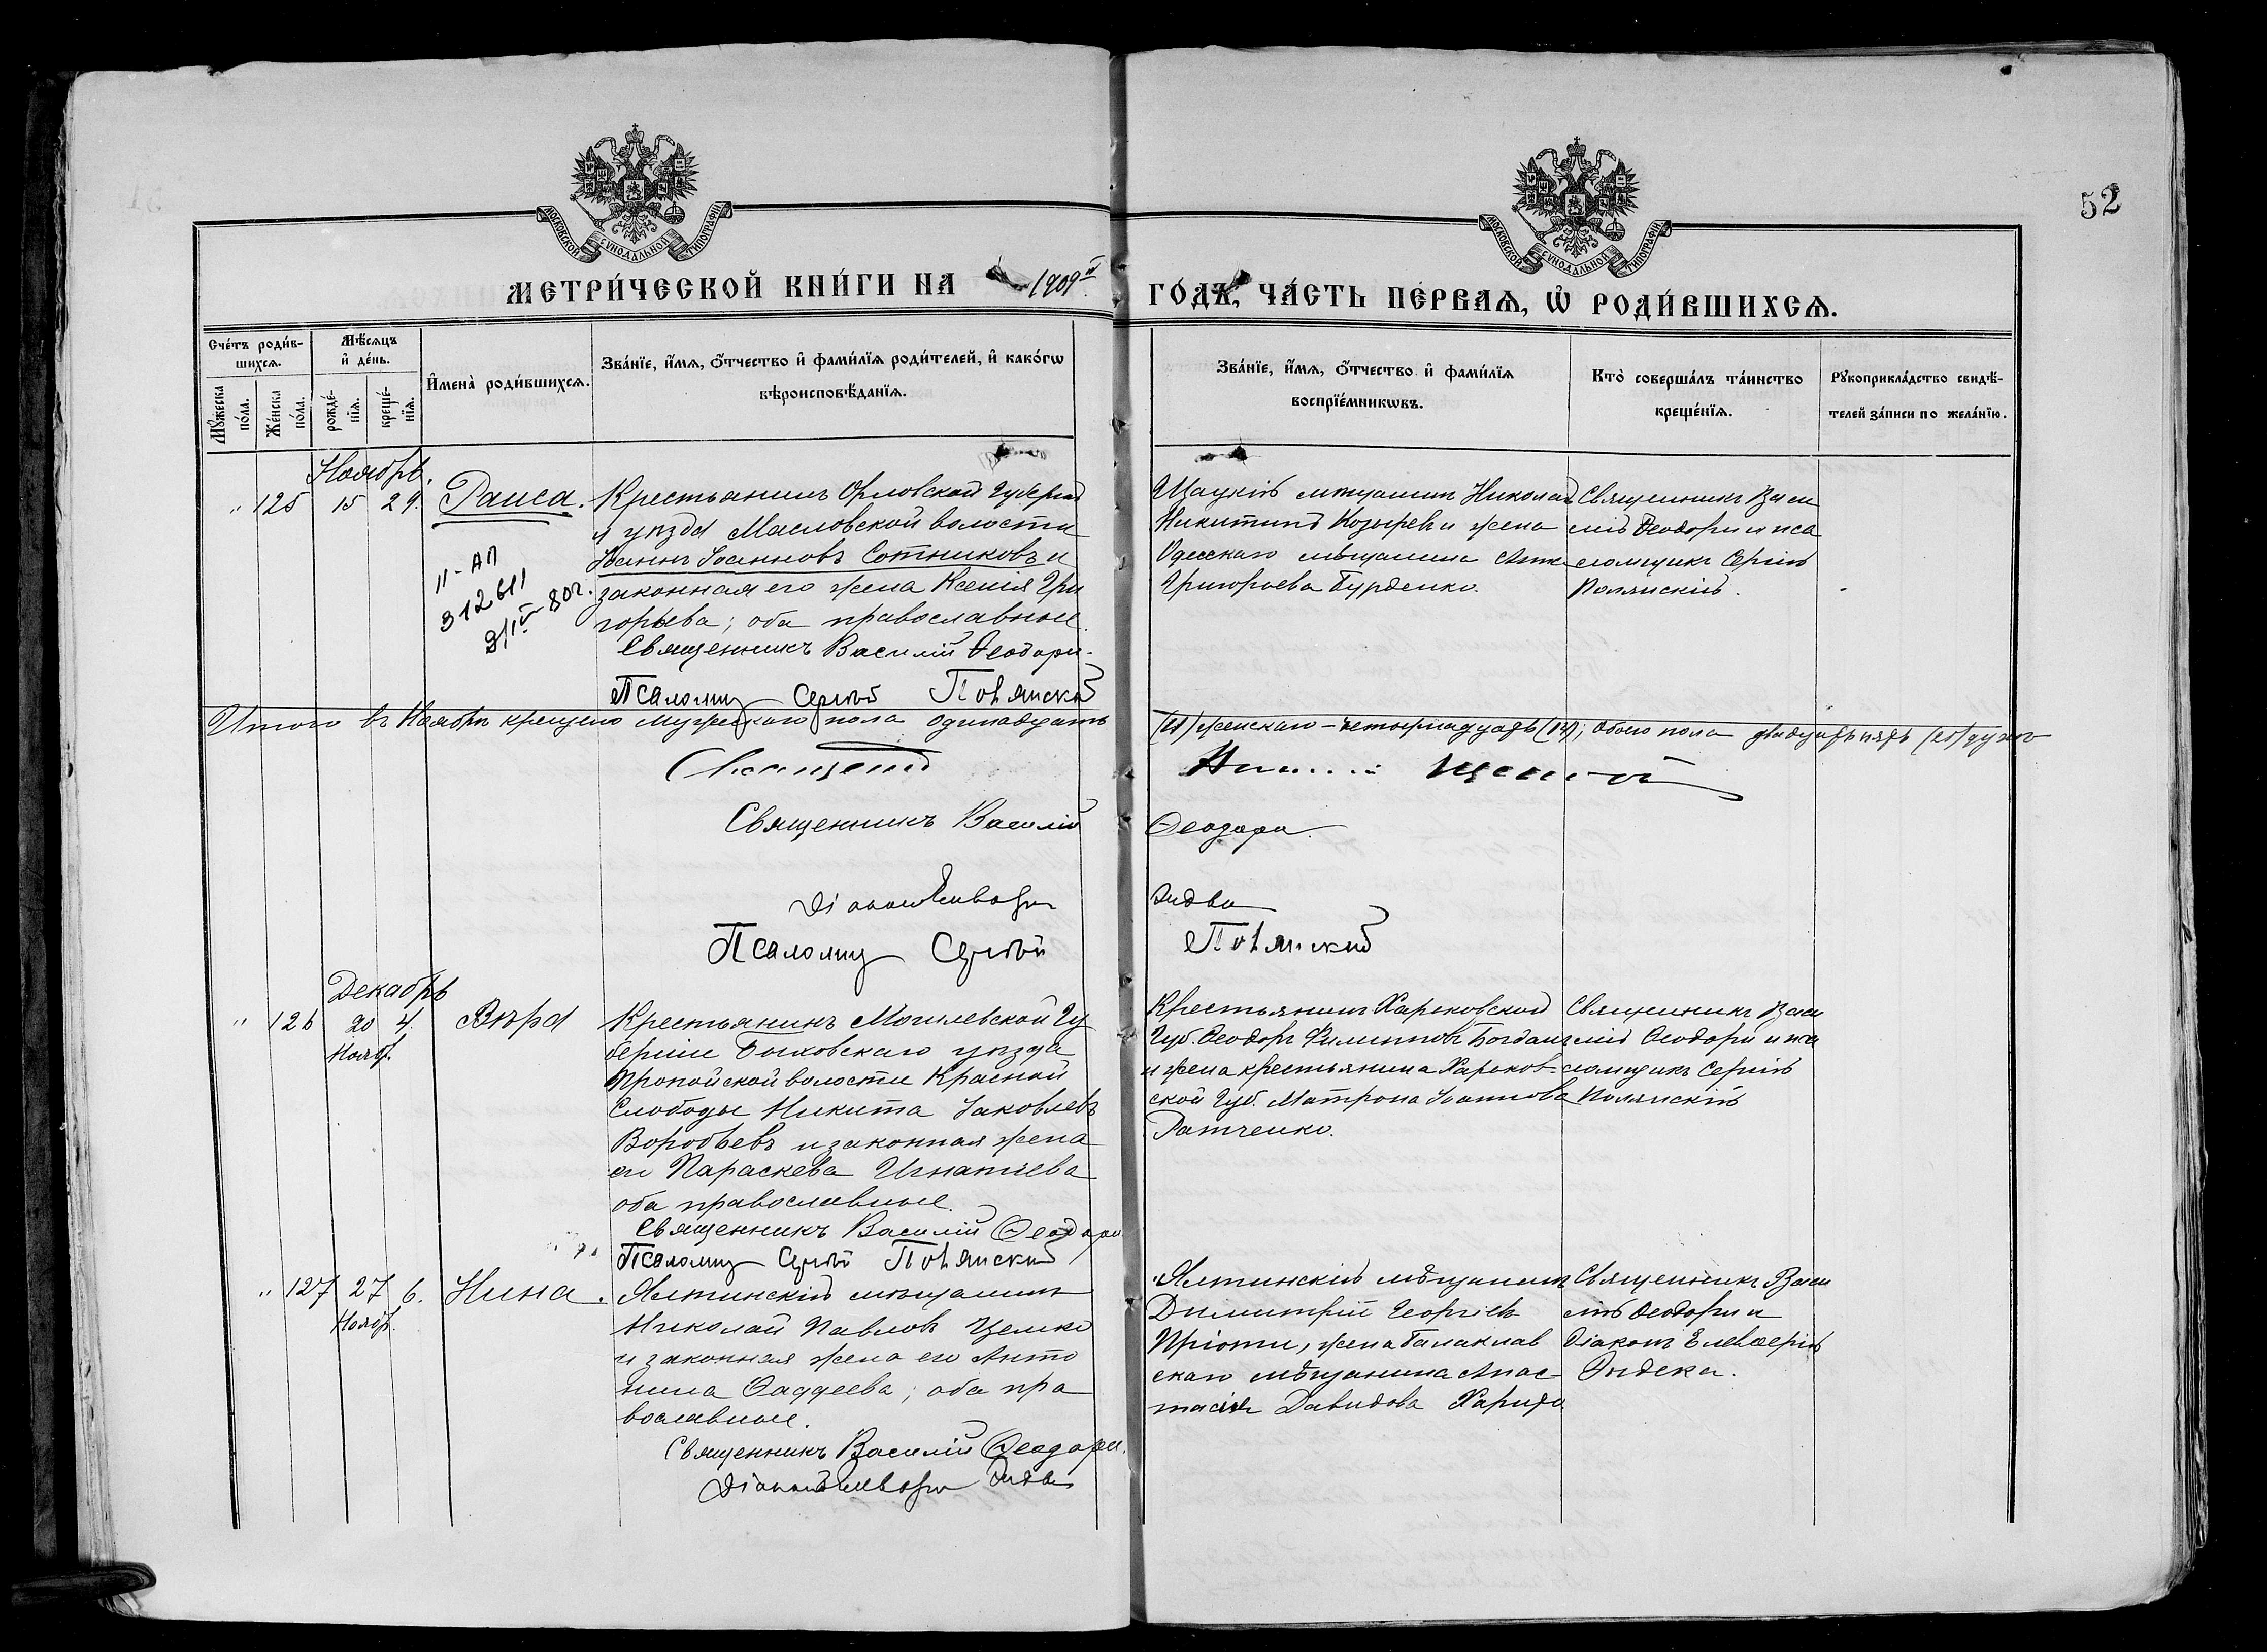 52
МОСКОВСКОЙ СѴНОДАЛЬНОЙ ТИПОГРАФІИ
МОСКОВСКОЙ СѴНОДАЛЬНОЙ ТИПОГРАФІИ
МЕТРИ́ЧЕСКОЙ КНИ́ГИ НА 1909й
ГО́ДЪ, ЧА́СТЬ ПЕ́РВАѦ, Ѡ҆ РОДИ́ВШИХСѦ.
Сче́тъ роди́в-
шихсѧ.
Мꙋ́жеска по́ла.
Же́нска по́ла.
Мѣ́сѧцъ
и҆ де́нь.
рожде́-
нїѧ.
креще́-
нїѧ.
И҆мена̀ роди́вшихсѧ.
Зва́нїе, и҆́мѧ, ѻ҆́тчество и҆ фами́лїѧ роди́телей, и҆ како́гѡ
вѣроисповѣ́данїѧ.
Зва́нїе, и҆́мѧ, ѻ҆́тчество и҆ фами́лїѧ
воспрїе́мникѡвъ.
Кто̀ соверша́лъ та́инство
креще́нїѧ.
Рꙋкоприкла́дство свидѣ́-
телей за́писи по жела́нїю.
Ноябрь.
" 125 15 29. Раиса.
11-АП
312611
Крестьянинъ Орловской Губерніи
и уѣзда Масловской волости
Іоаннъ Іоанновъ Сотниковъ и
законная его жена Ксенія Гри
горьева; оба православные.
Священникъ Василій Ѳеодори.
Псаломщ Сергѣй Полянскій
мѣщанинъ Николай
Никитинъ Козыревъ и жена
Одесскаго мѣщанина
Григорьева Бурденко.
Священникъ Васи
лій Ѳеодори и пса
ломщикъ Сергій
Полянскій.
Итого въ Ноябрѣ крещено мужескаго пола одинадцать
(11) женскаго - четырнадцать (14); обоего пола двадцать пять (25) душъ
Священникъ Василій
Ѳеодори
Псаломщ Сергѣй
Полянскій
Декабрь
" 126 20 4. Вѣра
Нояб.
Крестьянинъ Могилевской Гу
берніи Быховскаго уѣзда
Пропойской волости Красной
Слободы Никита Іаковлевъ
Воробьевъ и законная жена
его Параскева Игнатіева
оба православные.
Священникъ Василій Ѳеодори
Псаломщ Сергѣй Полянскій
Крестьянинъ Харьковской
Губ. Ѳеодоръ Филиповъ Богдан
и жена крестьянина Харьков-
ской Губ. Матрона Іоаннова
Ратченко.
Священникъ Васи
лій Ѳеодори и пса
ломщикъ Сергій
Полянскій
" 127 27 6. Нина.
Нояб.
Ялтинскій мѣщанинъ
Николай Павловъ Целико
и законная жена его Анто
нина Ѳаддеева; оба пра
вославные.
Священникъ Василій Ѳеодори.
Ялтинскій мѣщанинъ
Димитрій Георгіевъ
жена Балаклав
скаго мѣщанина Анас-
тасія Давидова
Священникъ Васи
лій Ѳеодори и
Діаконъ Елевѳерій